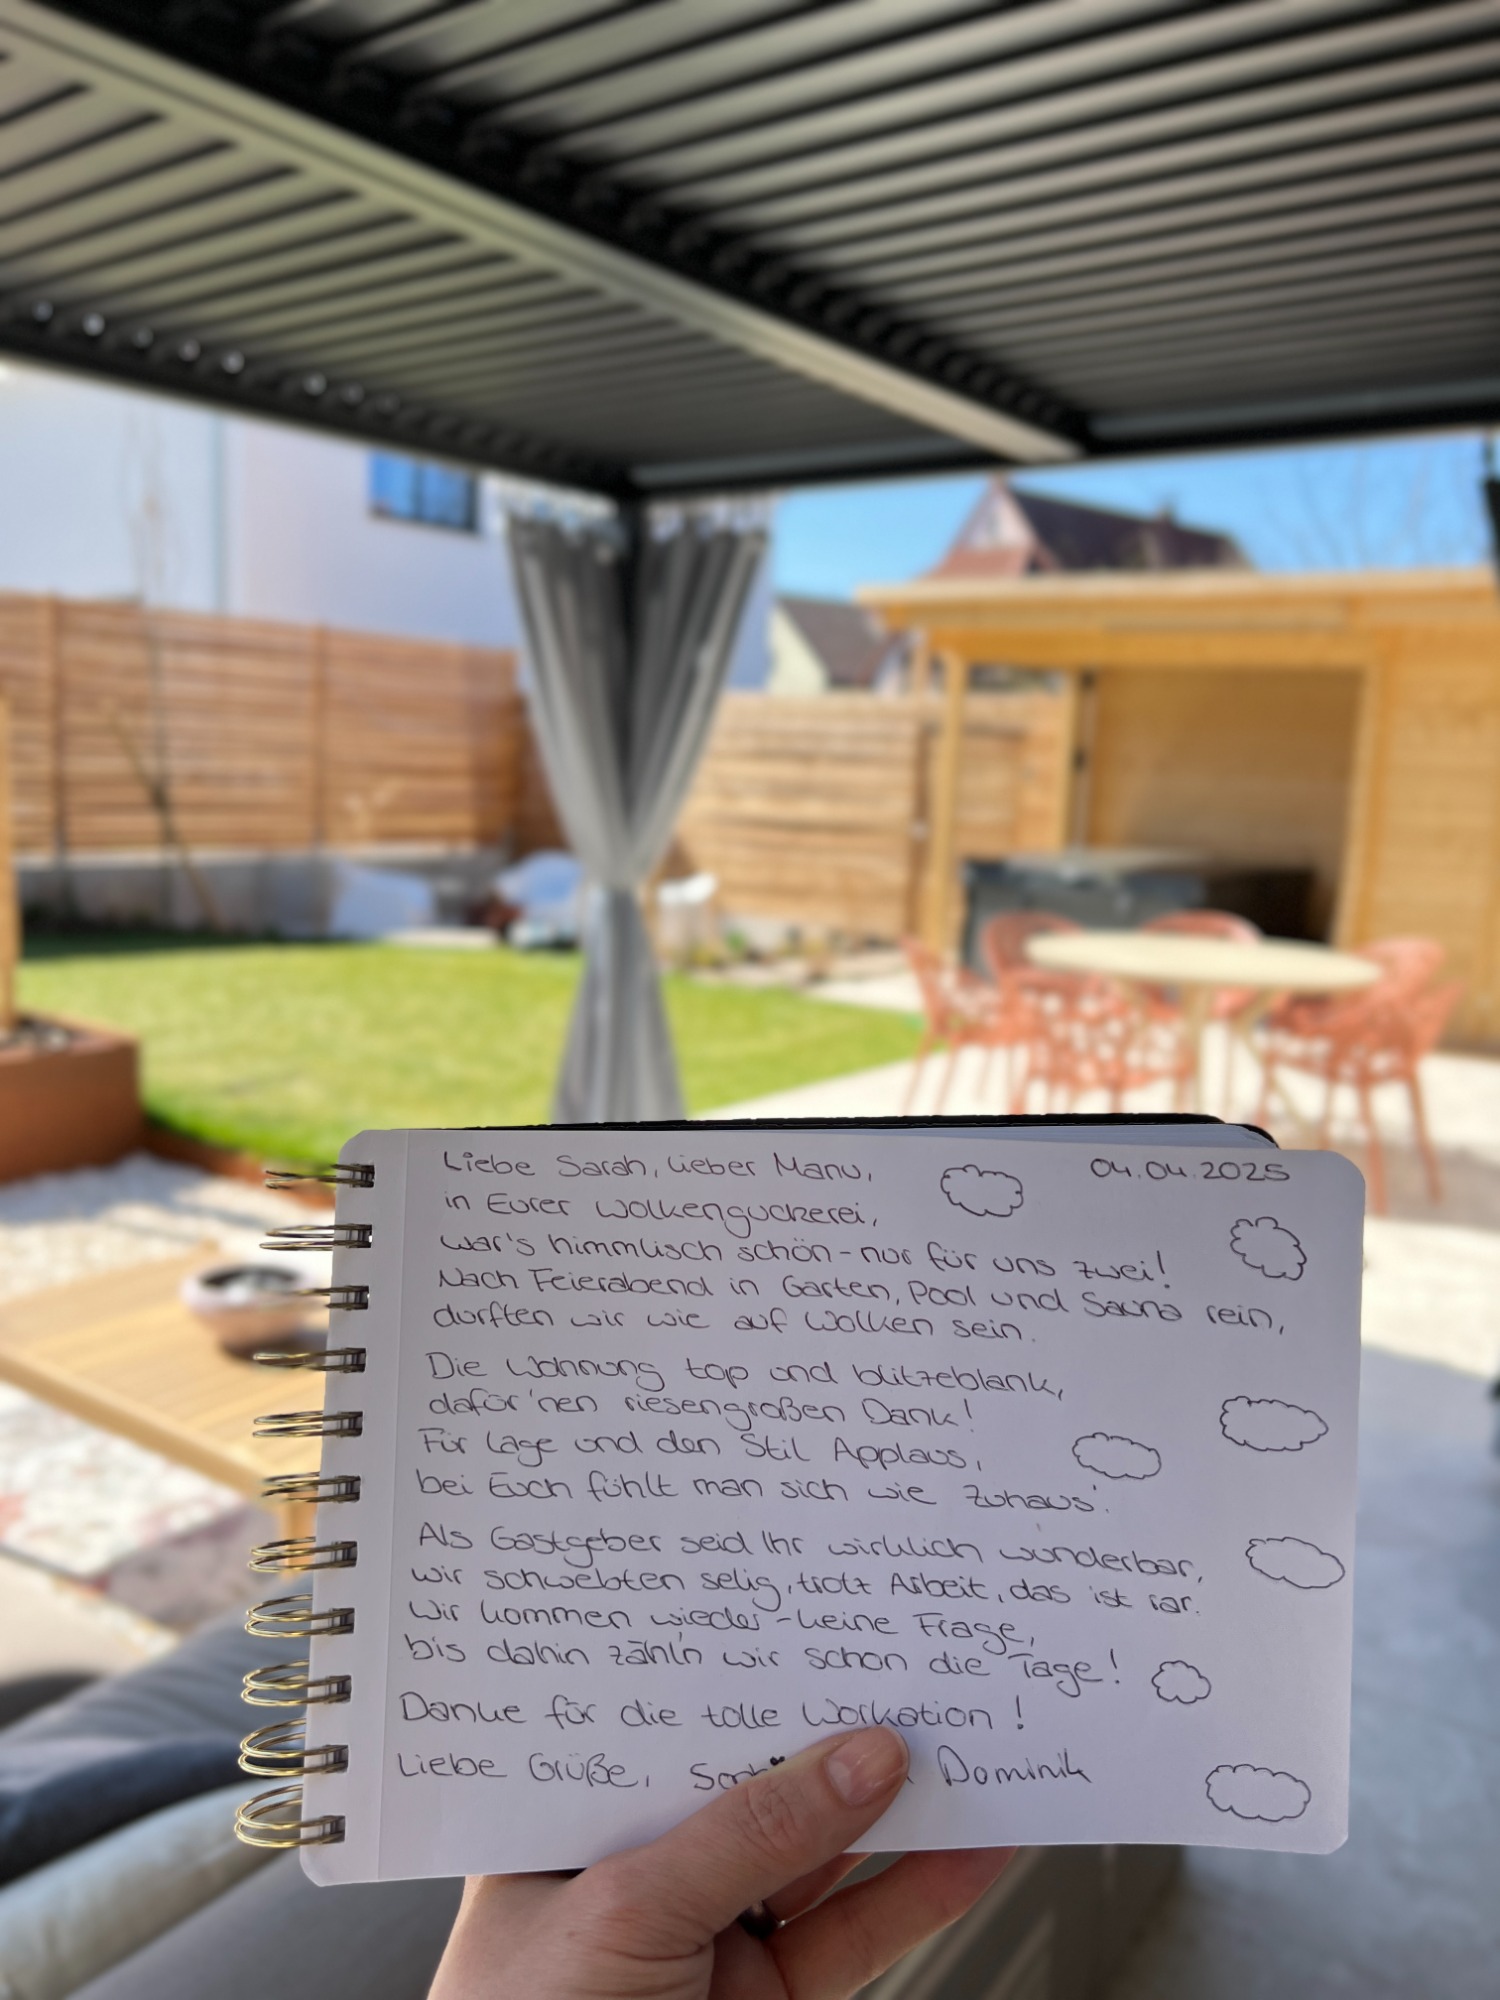 04.04.2025
Liebe Sarah, lieber Manu,
in Eurer Wolkenguckerei,
war's himmlisch schön - nur für uns zwei!
Nach Feierabend in Garten, Pool und Sauna rein,
durften wir wie auf Wolken sein.
Die Wohnung top und blitzeblank,
dafür 'nen riesengroßen Dank!
Für Lage und den Stil Applaus,
bei Euch fühlt man sich wie Zuhaus'.
Als Gastgeber seid Ihr wirklich wunderbar,
wir schwebten selig, trotz Arbeit, das ist rar.
Wir kommen wieder - keine Frage,
bis dahin zähl'n wir schon die Tage!
Danke für die tolle Workation!
Liebe Grüße, Dominik